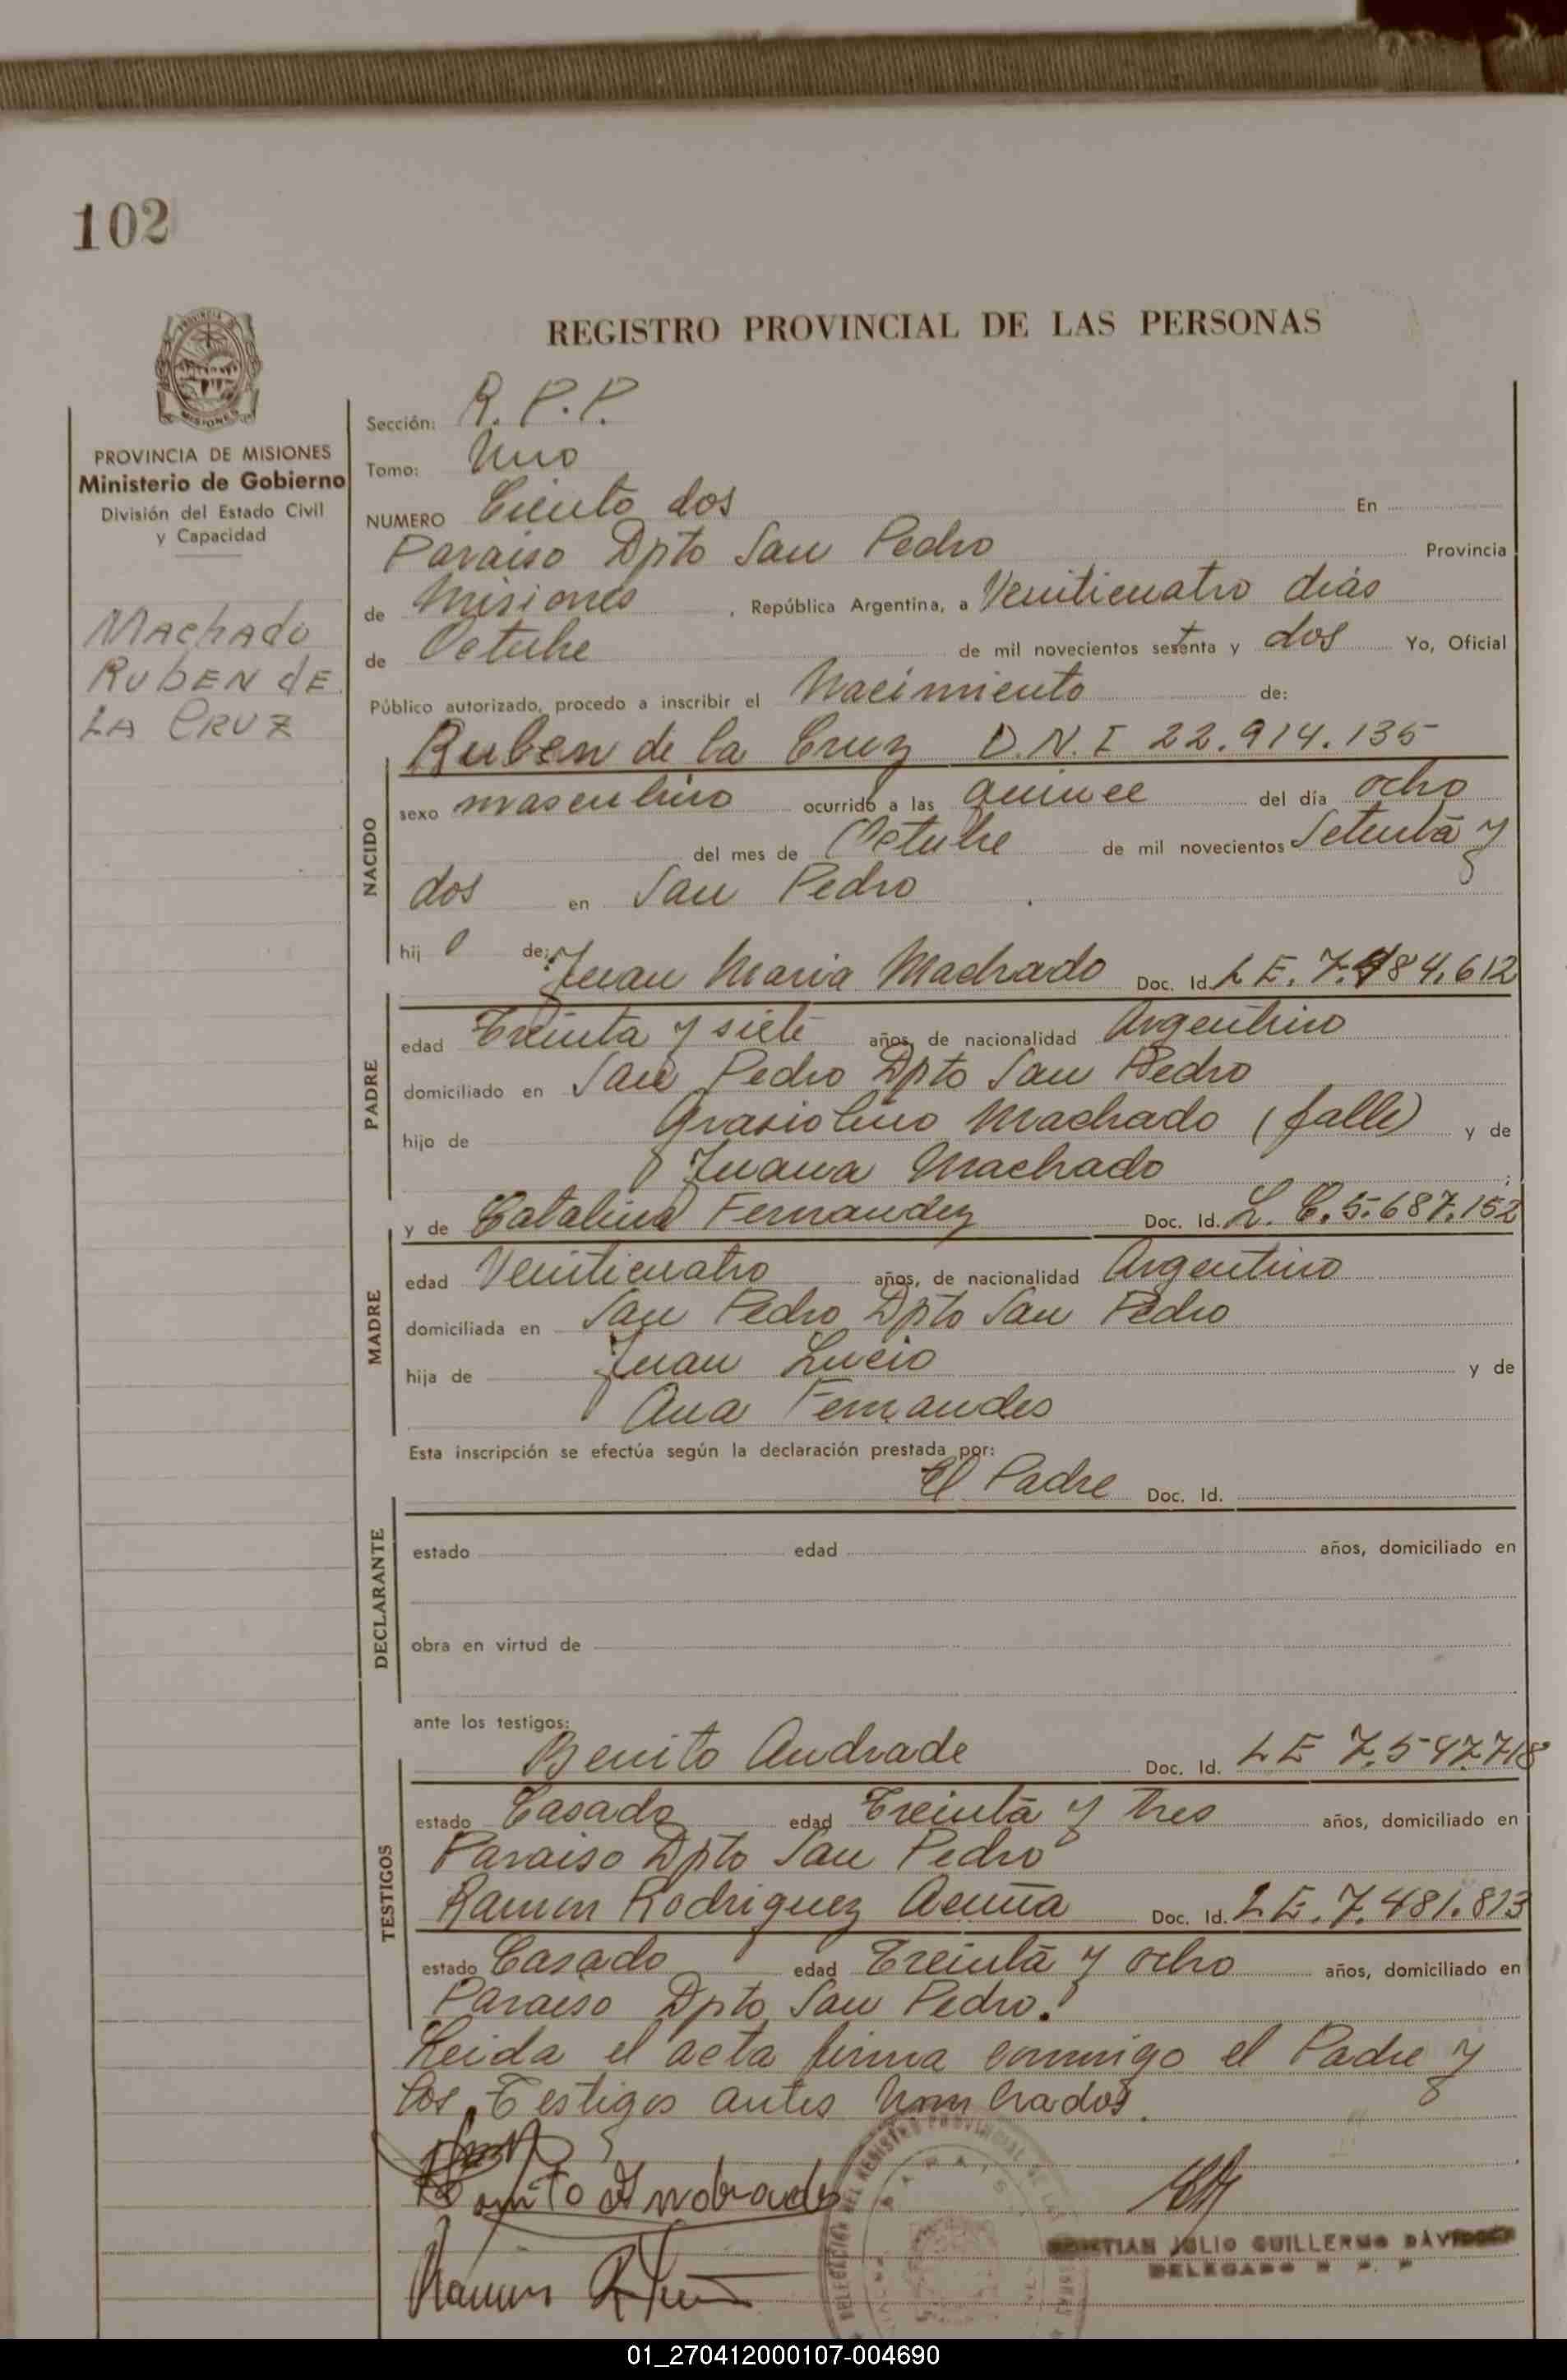 102
REGISTRO PROVINCIAL DE LAS PERSONAS
MISIONES
PROVINCIA DE MISIONES
Ministerio de Gobierno
División del Estado Civil
y Capacidad
Machado
Ruben de
la Cruz
Sección: R. P. P.
Tomo: Uno
NUMERO Ciento dos En
Paraiso Dpto San Pedro Provincia
de Misiones, República Argentina, a Veniticuatro dias
de Octubre de mil novecientos setenta y dos Yo, Oficial
Público autorizado, procedo a inscribir el Nacimiento de:
Ruben de la Cruz D.N.I 22.914.135
NACIDO
sexo masculino ocurrido a las quince del día ocho
del mes de Octubre de mil novecientos Setenta y
dos en San Pedro
hij o de: Juan Maria Machado Doc. Id. L E. 7.484.612
PADRE
edad Treinta y siete años, de nacionalidad Argentino
domiciliado en San Pedro Dpto San Pedro
hijo de Grasiolino Machado (falle) y de
Juana Machado ;
y de Catalina Fernandez Doc. Id. L. C. 5.687.152
MADRE
edad Veniticuatro años, de nacionalidad Argentino
domiciliada en San Pedro Dpto San Pedro
hija de Juan Lucio y de
Ana Fernandes
Esta inscripción se efectúa según la declaración prestada por:
El Padre Doc. Id.
DECLARANTE
estado edad años, domiciliado en
obra en virtud de
ante los testigos:
Benito Andrade Doc. Id. L E 7.547.718
TESTIGOS
estado Casado edad Treinta y Tres años, domiciliado en
Paraiso Dpto San Pedro
Ramon Rodriguez Acuña Doc. Id. L E. 7.481.813
estado Casado edad Treinta y ocho años, domiciliado en
Paraiso Dpto San Pedro.
Leida el acta firma conmigo el Padre y
los Testigos antes Nombrados.
Benito Andrade
Ramon
JULIO GUILLERMO
DELEGADO R P. P
01_270412000107-004690